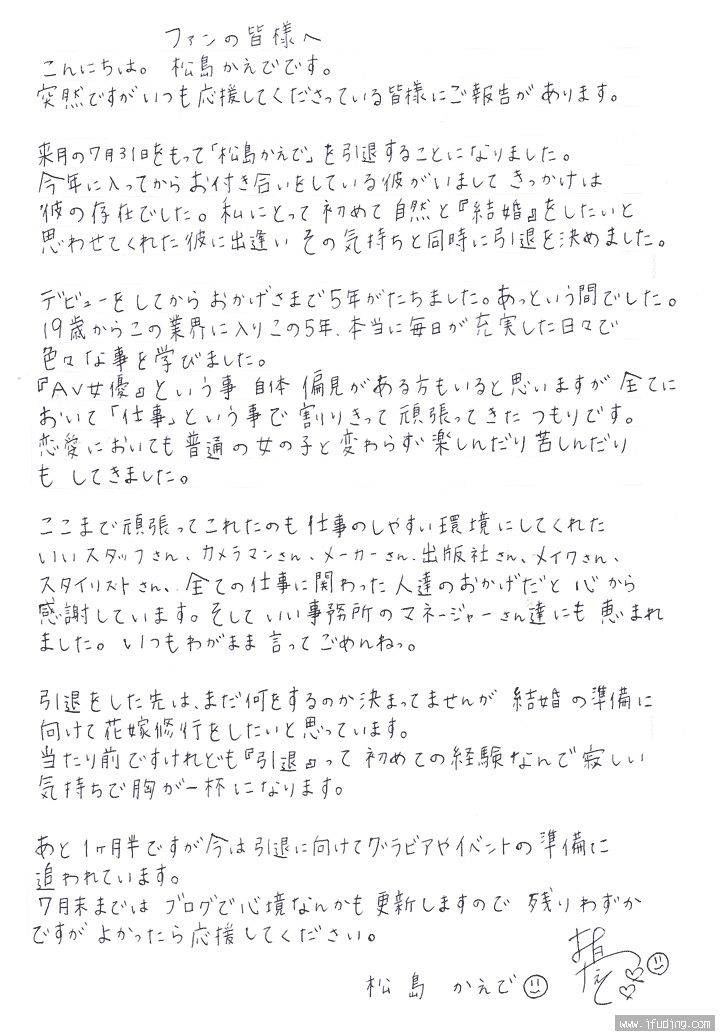 ファンの皆様へ
こんにちは。 松島かえでです。
突然ですがいつも応援してくださっている皆様にご報告があります。
来月の7月31日をもって「松島かえで」を引退することになりました。
今年に入ってからお付き合いをしている彼がいまして きっかけは
彼の存在でした。私にとって 初めて 自然と『結婚』をしたいと
思わせてくれた彼に出逢い その気持ちと同時に引退を決めました。
デビューをしてから おかげさまで5年がたちました。あっという間でした。
19歳からこの業界に入りこの5年、本当に毎日が 充実した日々で
色々な事を学びました。
『AV女優』という事 自体 偏見がある方もいると思いますが 全てに
おいて「仕事」という事で 割りきって 頑張ってきた つもりです。
恋愛においても 普通の女の子と変わらず 楽しんだり 苦しんだり
も してきました。
ここまで頑張ってこれたのも 仕事のしやすい環境にしてくれた
いいスタッフさん、カメラマンさん、メーカーさん、出版社さん、メイクさん、
スタイリストさん、全ての仕事に関わった 人達のおかげだと 心から
感謝しています。そして いい事務所のマネージャーさん達にも 恵まれ
ました。いつもわがまま 言ってごめんねっ。
引退をした先は、まだ何をするのか決まってませんが 結婚の準備に
向けて花嫁修行をしたいと思っています。
当たり前ですけれども『引退』って 初めての経験なんで 寂しい
気持ちで胸が一杯になります。
あと 1ヶ月半ですが今は引退に向けてグラビアやイベントの準備に
追われています。
7月末までは ブログで心境なんかも 更新しますので 残りわずか
ですが よかったら応援してください。
松島 かえで
www.ifuding.com